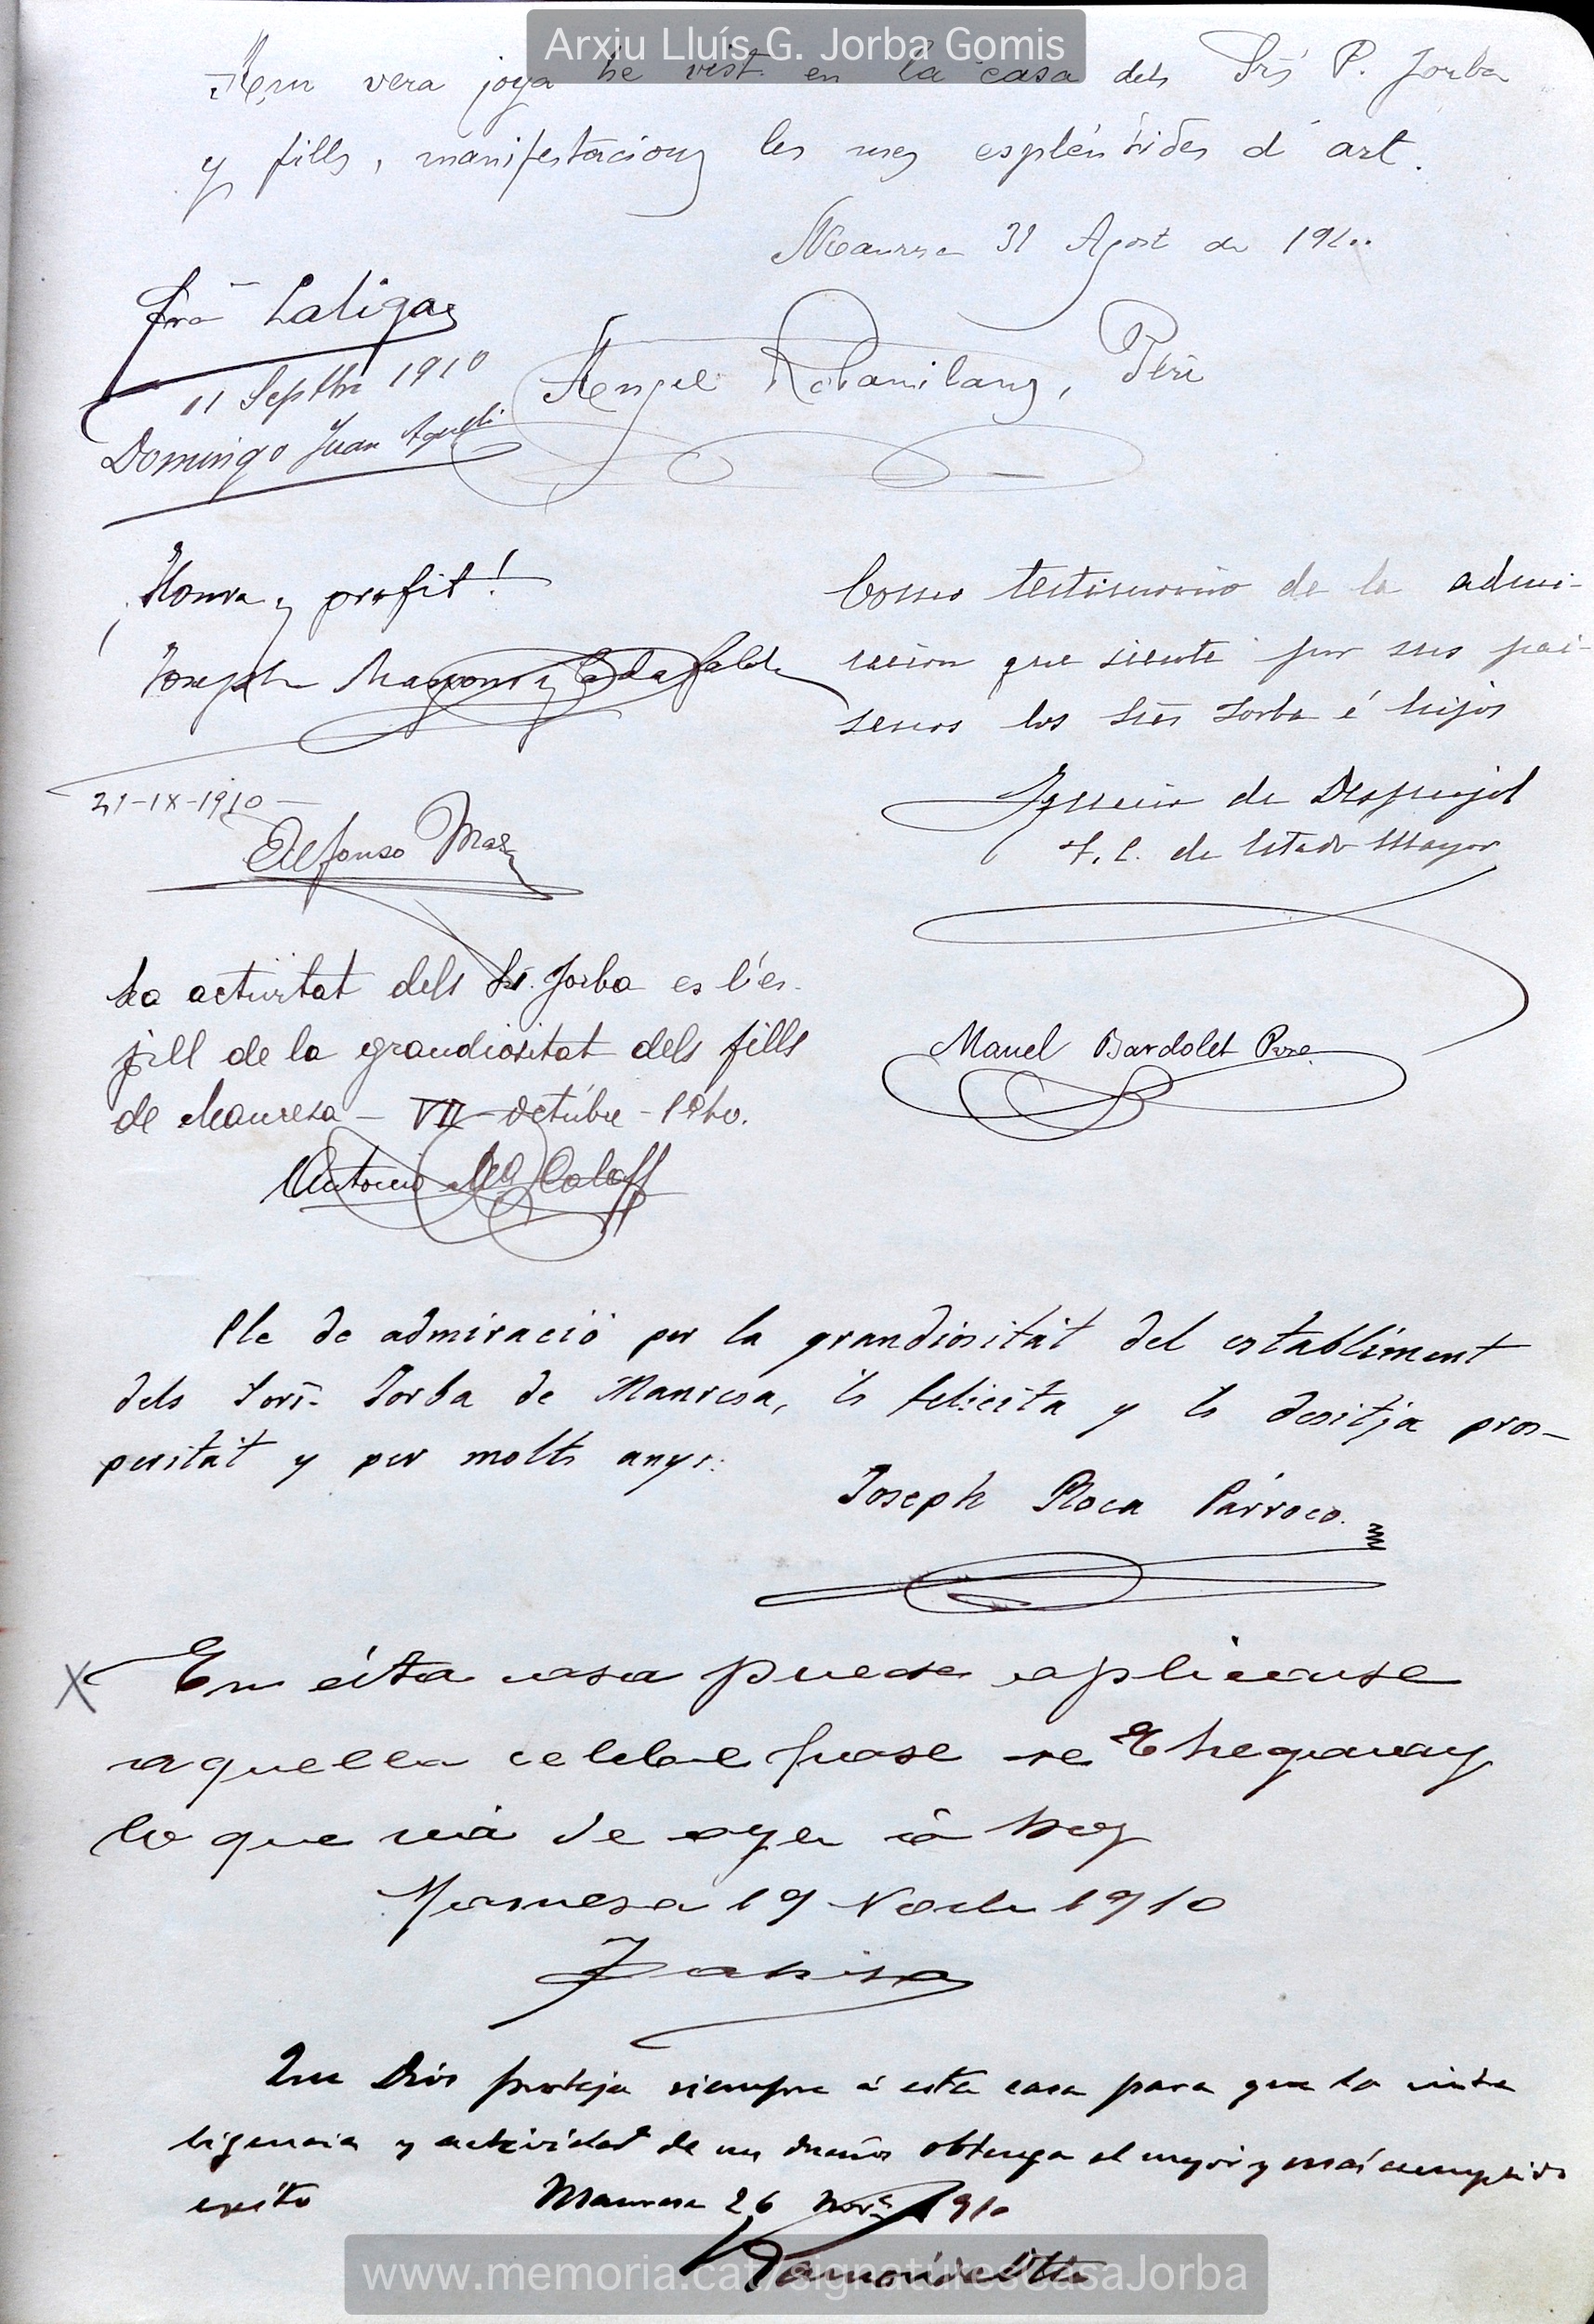 Arxiu Lluís G. Jorba Gomis
vera joya he vist en la casa dels Srs P. Jorba
y fills, manifestacions les mes espléndides d'art.
Manresa 31 Agost de 1910
11 Septbre 1910
Domingo Juan
Angel Pbre
Honra y profit!
Joseph Maspons y Cadafalch
21-IX-1910
Alfonso Mas
Como testimonio de la admi-
racion que siente por sus pai-
senos los Sres Jorba é hijos
Ignacio de Despujol
T. C. de Estado Mayor
La activitat dels Srs. Jorba es l'es-
pill de la grandiositat dels fills
de Manresa - VII - Octubre - 1910.
Antoni
Manel Bardolet Pvre
Ple de admiració per la grandiositat del establiment
dels Sors. Jorba de Manresa, ls felicita y ls desitja pros-
peritat y per molts anys.
Joseph Roca Párroco.
En ésta casa puede aplicarse
aquella celebre frase de Ehegaray
lo que vá de ayer á hoy
Manresa 19 Nvbre 1910
Que Dios proteja siempre á esta casa para que la inte
ligencia y actividad de sus dueños obtenga el mayor y más cumplido
exito
Manresa 26 Novre 1910
www.memoria.cat/signaturescasaJorba